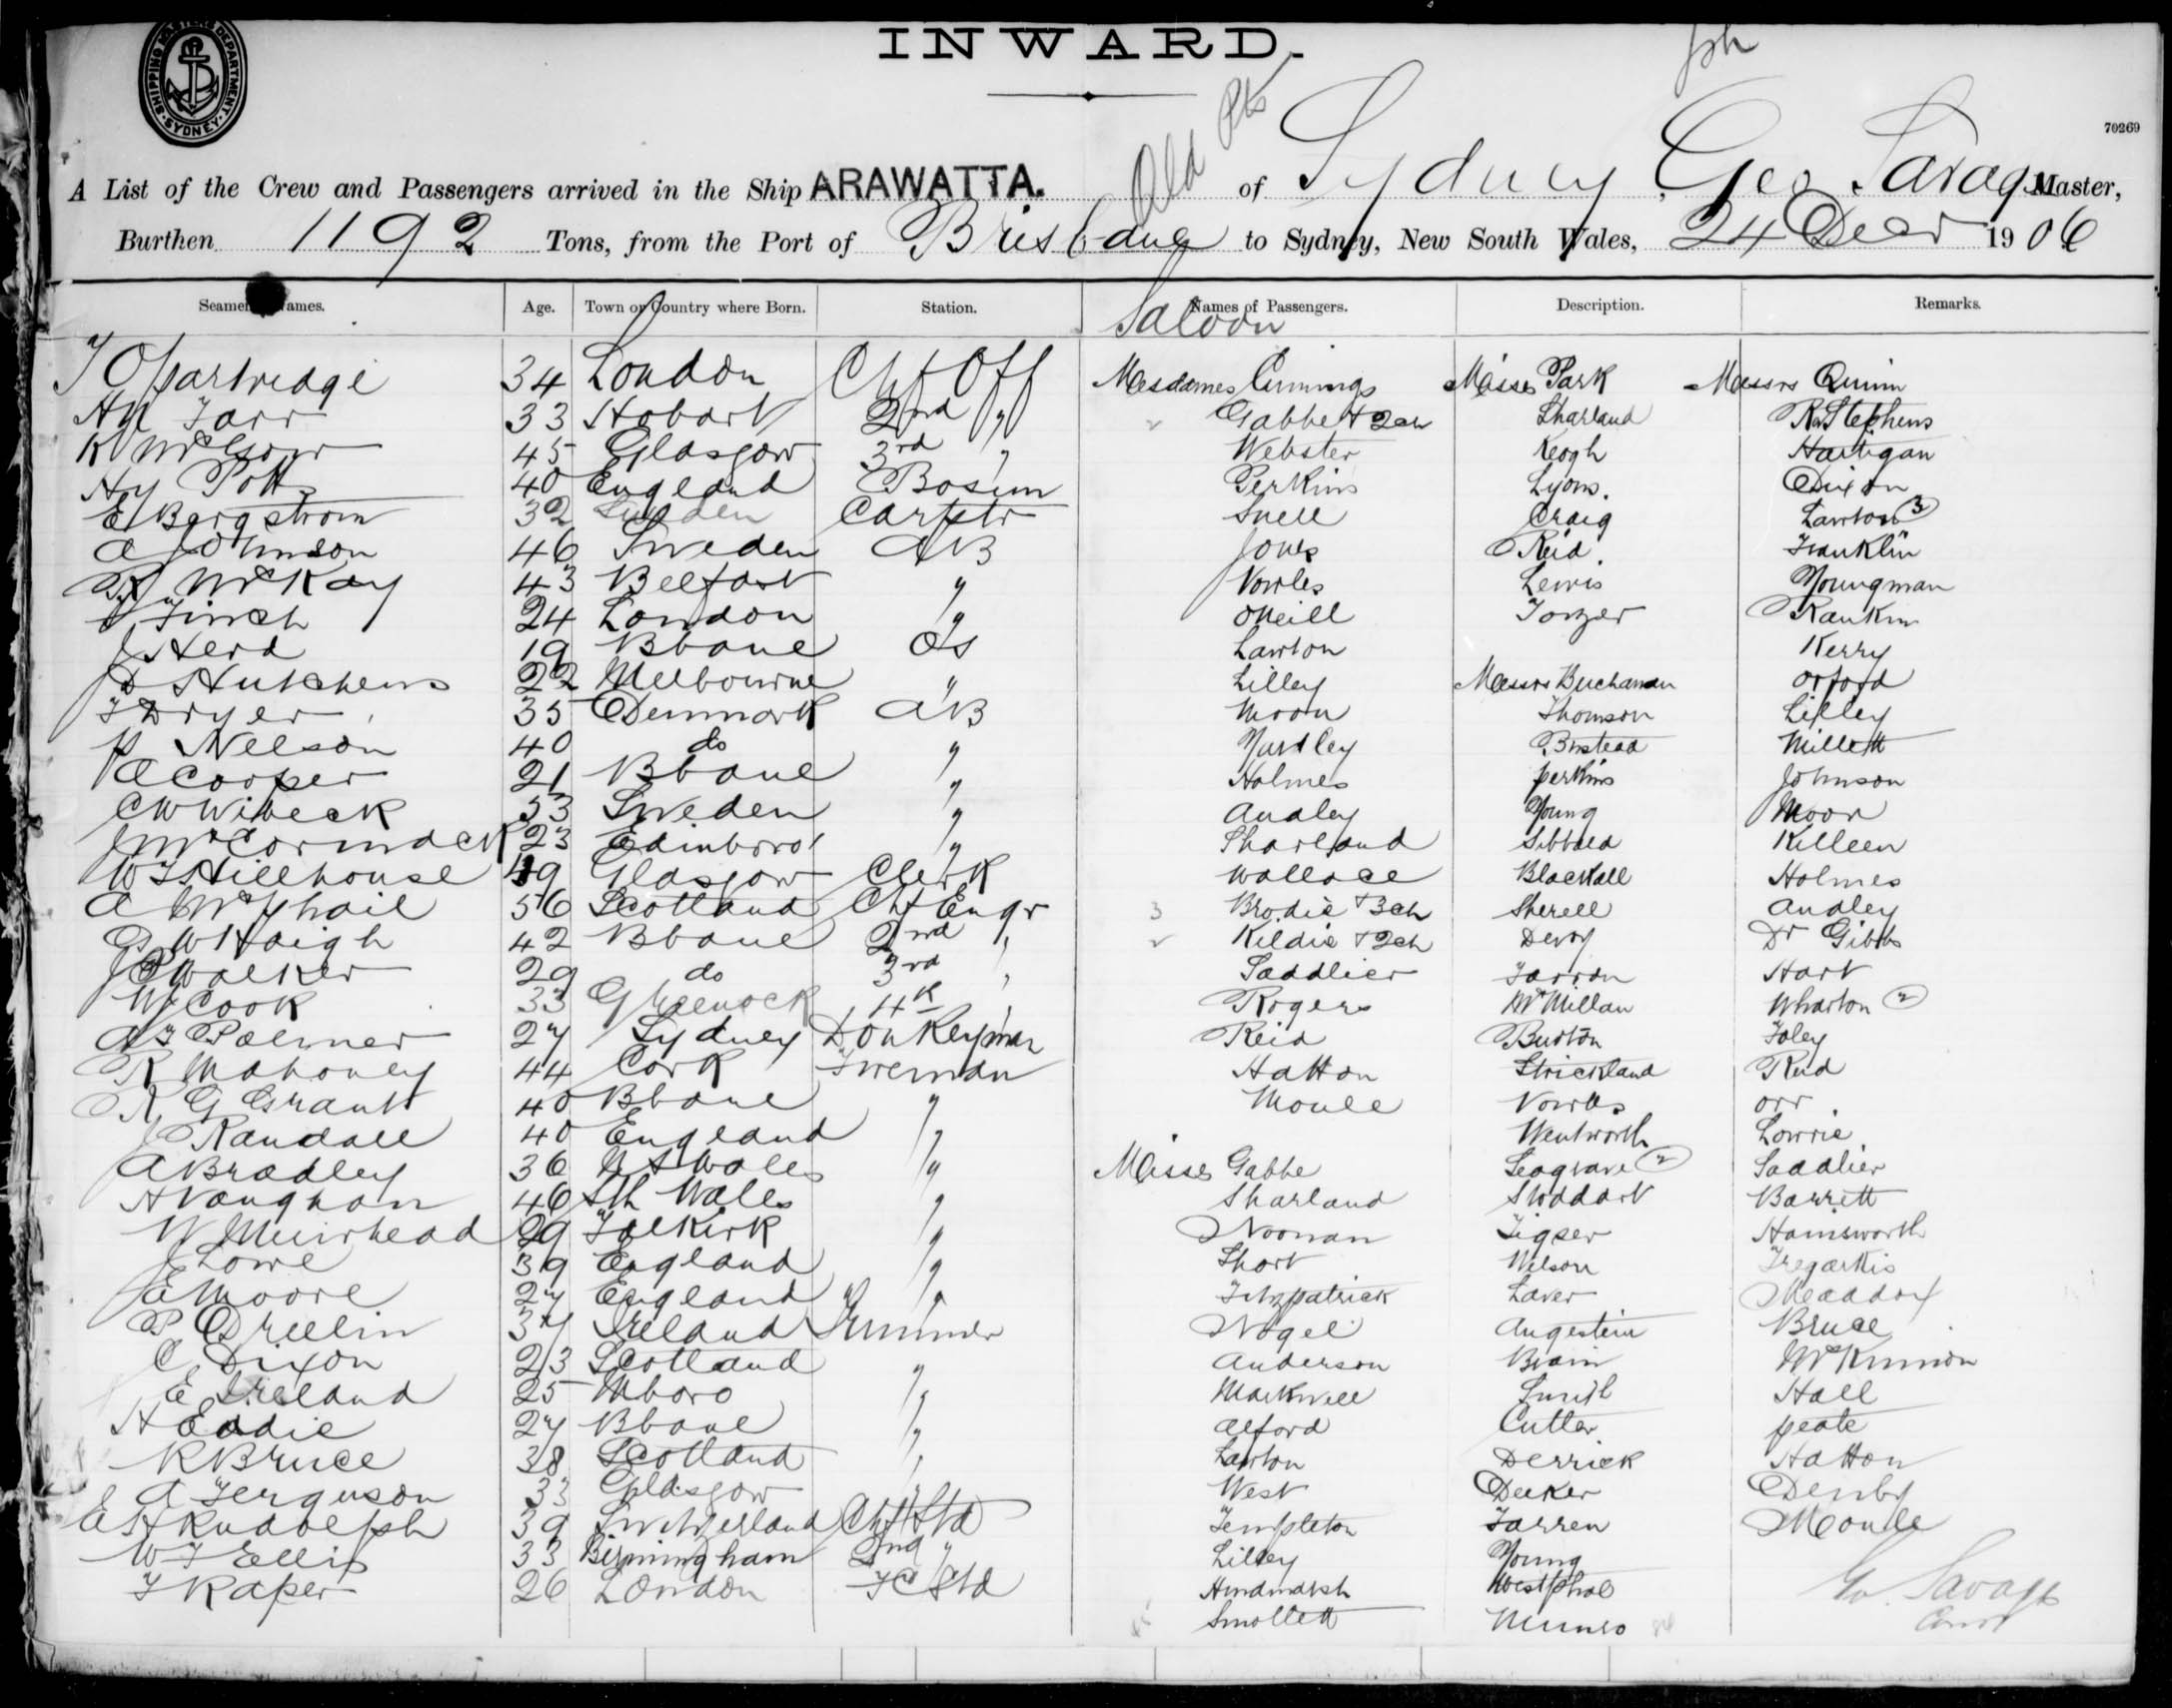 INWARD.
SHIPPING MASTERS DEPARTMENT SYDNEY
Old Pts
70269
A List of the Crew and Passengers arrived in the Ship ARAWATTA. of Sydney, Geo Savage Master,
Burthen 1192 Tons, from the Port of Brisbane to Sydney, New South Wales, 24 Decr 1906
Seamen's Names. Age. Town or Country where Born. Station. Names of Passengers. Description. Remarks.
Saloon
Partridge 34 London Chf Off Mesdames Cumings Misses Park Messrs Quinn
Hy Farr 33 Hobart 2nd " Gabbe + 2ch Sharland Stephens
K McGowr 45 Glasgow 3rd " Webster Keogh Hartigan
Hy Potts 40 England Bosun Perkins Lyons. Dixon
E Bergstrom 32 Sweden Carptr Snell Craig Lawton 3
A Johnson 46 Sweden AB Jones Reid Franklin
R McKay 43 Belfast " Vowles Lewis Youngman
Finch 24 London " ONeill Tozer Rankin
J Herd 19 Bbane OS Lawton Kerry
D Hutchens 22 Melbourne " Lilley Messrs Buchanan Orford
F Dryer 35 Denmark AB Moon Thomson Lilley
P Nelson 40 do " Yardley Bustead Millett
A Cooper 21 Bbane " Holmes Perkins Johnson
C W Wibeck 53 Sweden " Audley Young Moor
J McCormack 23 Edinboro " Sharland Sibbald Killeen
W F Hillhouse 49 Glasgow Clerk Wallace Blackall Holmes
A McPhail 56 Scotland Chf Engr 3 Brodie + 3ch Sherell Audley
G W Haigh 42 Bbane 2nd " Kildie + 2ch Devoy Dr Gibbs
J Walker 29 do 3rd " Saddlier Farron Hart
W Cook 33 Greenock 4th " Rogers McMillan Wharton 2
A F Palmer 27 Sydney Donkeyman Reid Burton Foley
R Mahoney 44 Cork Fireman Hatton Strickland Reid
R G Grant 40 Bbane " Moule Vowles Orr
J Randall 40 England " Wentworth Lowrie
A Bradley 36 N S Wales " Misses Gabbe Seagrave 2 Saddlier
H Vaughan 46 Sth Wales " Sharland Stoddart Barrett
W Muirhead 29 Falkirk " Noonan Tigser Hainsworth
J Lowe 39 England " Short Wilson Tregarkis
E Moore 27 England " Fitzpatrick Laver Meaddox
P Breelin 34 Ireland Trimmer Nagel Augestein Bruce
C Dixon 23 Scotland " Anderson Brain McKinnon
E Ireland 25 Mboro " Markwell Smith Hall
H Eddie 27 Bbane " Alford Cutler Peate
R Bruce 38 Scotland " Lawton Derrick Hatton
A Ferguson 33 Glasgow " West Decker Denby
E H Rudolph 39 Switzerland Chf Std Templeton Farren Moule
W F Ellis 33 Birmingham 2nd " Lilley Young
F Raper 26 London FC Std Hindmarsh Westphal Geo Savage
Smollett Munro